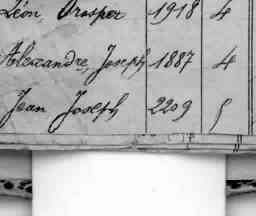 Léon, Prosper 1918 4
Alexandre, Joseph 1887 4
Jean Joseph 2209 5